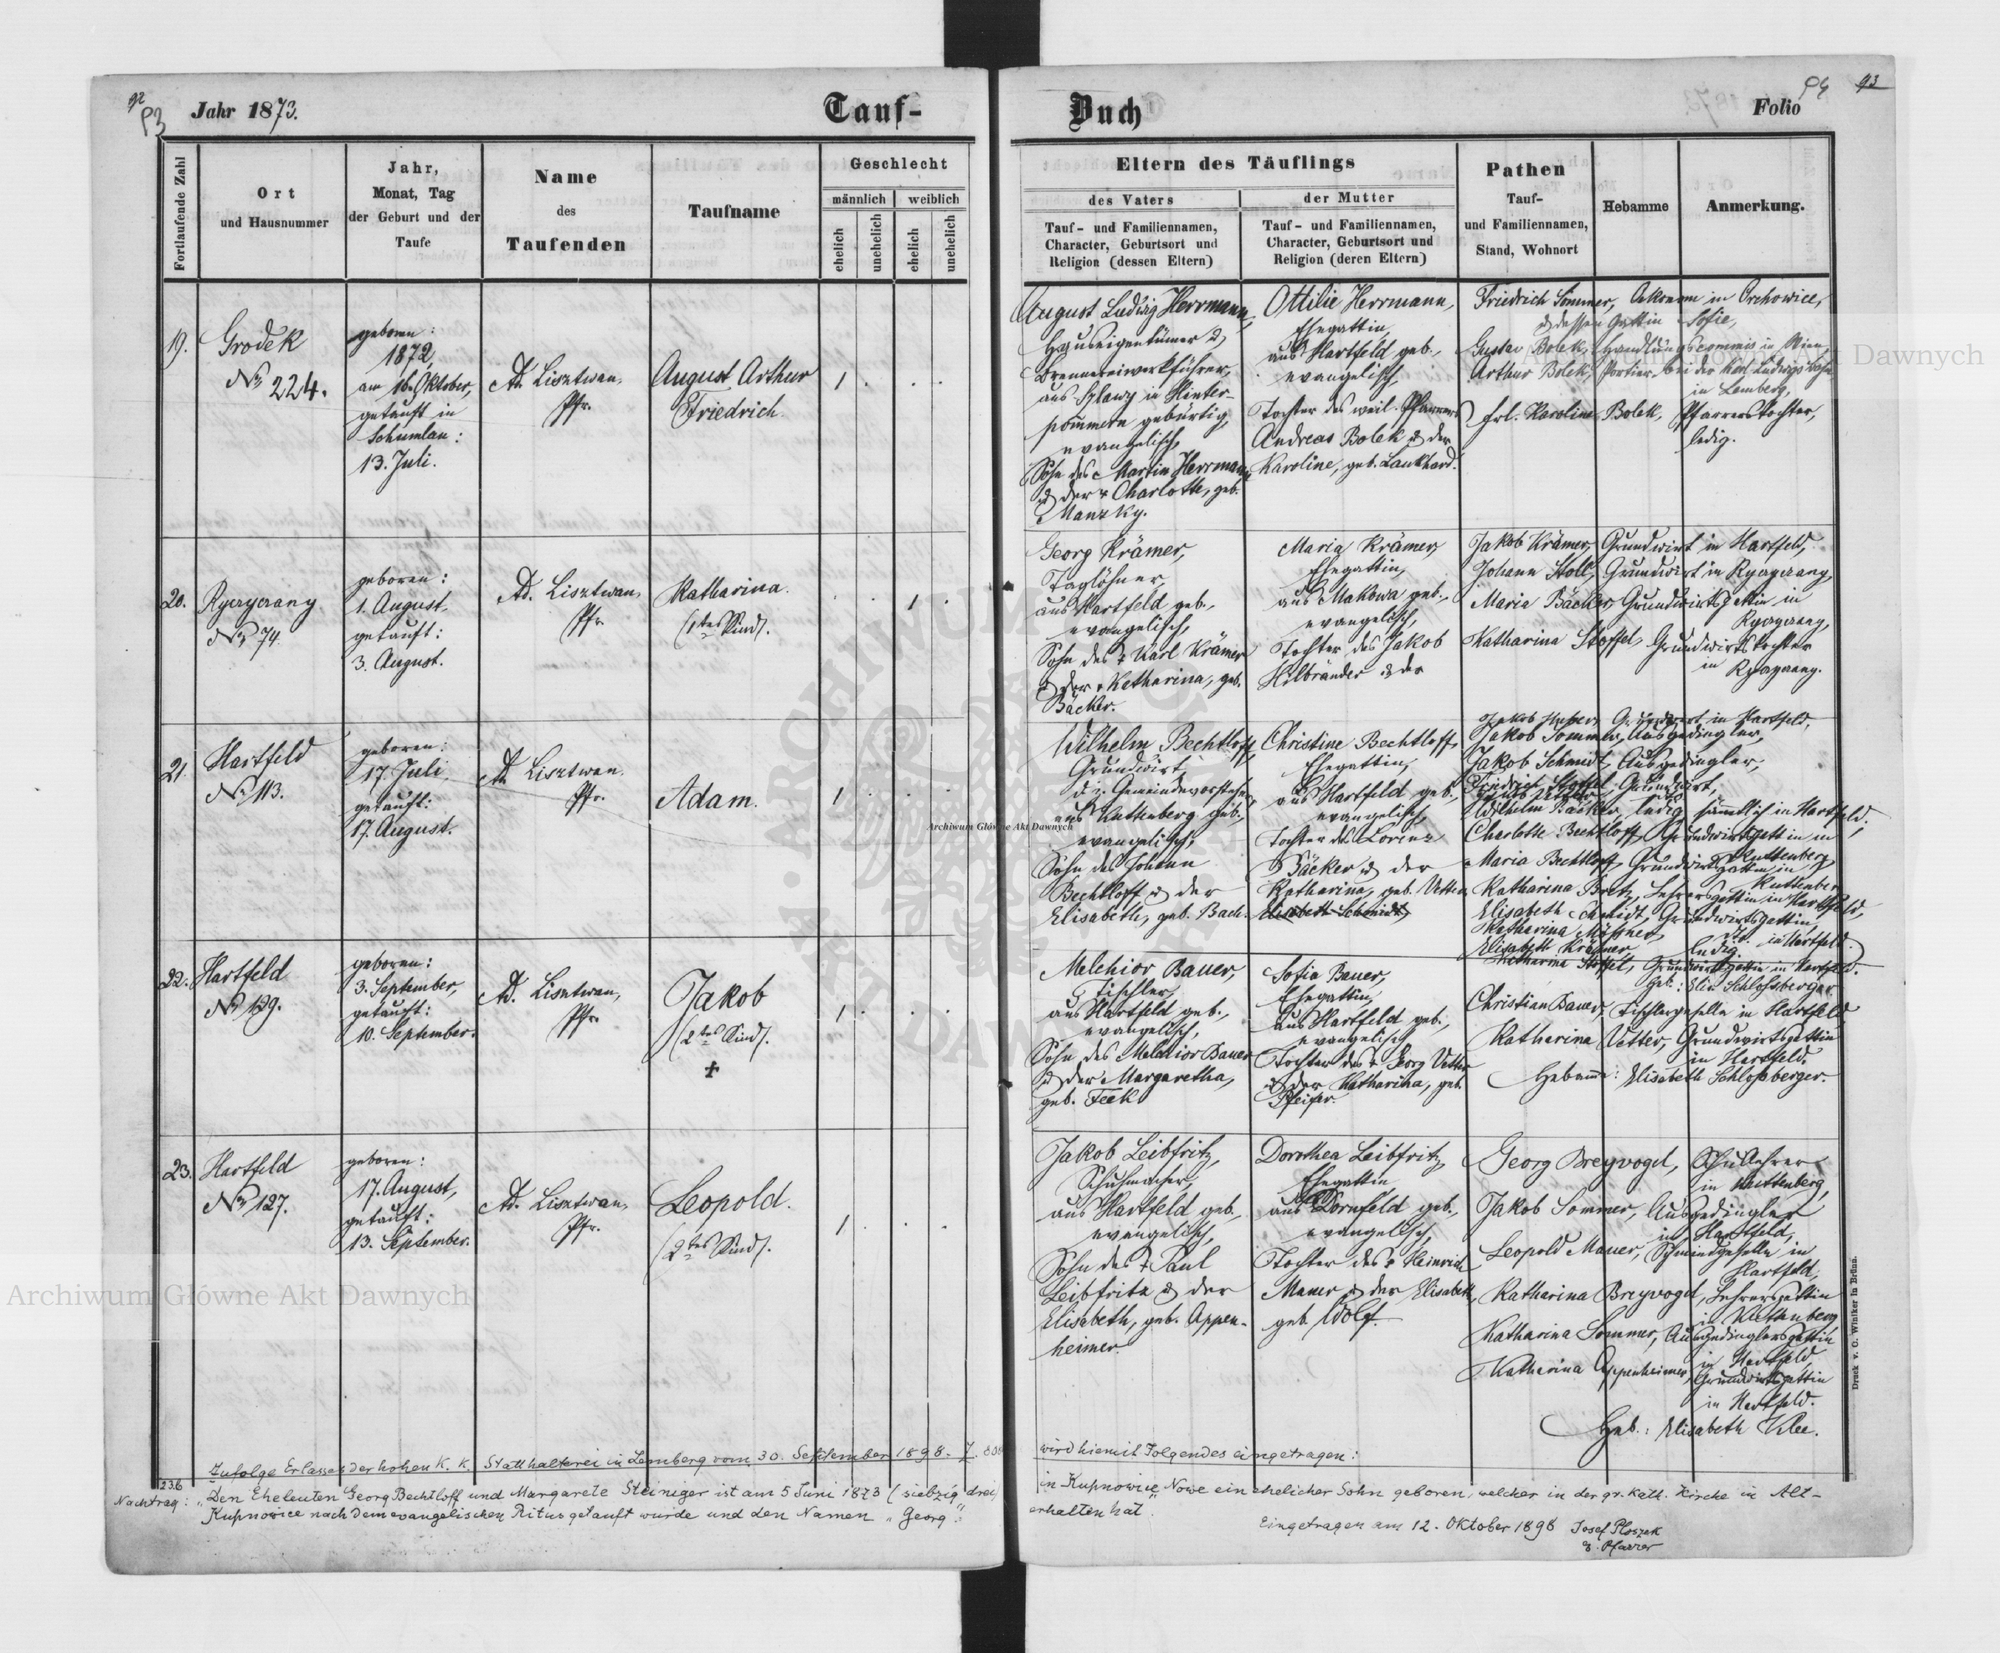 92
93
Jahr 1873.
Tauf-
Buch
Folio
94
93
Fortlaufende Zahl
Ort
und Hausnummer
Jahr,
Monat, Tag
der Geburt und der
Taufe
Name
des
Taufenden
Taufname
Geschlecht
männlich
weiblich
ehelich
unehelich
ehelich
unehelich
Eltern des Täuflings
des Vaters
Tauf- und Familiennamen,
Character, Geburtsort und
Religion (dessen Eltern)
der Mutter
Tauf- und Familiennamen,
Character, Geburtsort und
Religion (deren Eltern)
Pathen
Tauf-
und Familiennamen,
Stand, Wohnort
Hebamme
Anmerkung.
19.
Grodek
No 224.
geboren:
1872,
am 16. Oktober,
getauft in
Schumlau:
13. Juli.
Ad. Lisztwan,
Pfr.
August Arthur
Friedrich.
1
August Ludwig Herrmann,
Hauseigentümer &
Brennereiwerkführer,
aus Sylawy in Hinter-
pommern gebürtig,
evangelisch,
Sohn des Martin Herrmann
& der Charlotte, geb.
Manzky.
Ottilie Herrmann,
Ehegattin,
aus Hartfeld geb.,
evangelisch,
Tochter des weil. Pfarrers
Andreas Bolek & der
Karoline, geb. Laukhard.
Friedrich Sommer, Oekonom in Orchowice,
& dessen Gattin Sofie,
Gustav Bolek, Handlungscommis in Wien,
Arthur Bolek, Portier bei der Karl Ludwigsbahn
in Lemberg,
Frl. Karoline Bolek, Pfarrerstochter,
ledig.
20.
No 74.
geboren:
1. August,
getauft:
3. August.
Ad. Lisztwan,
Pfr.
Katharina.
(1tes Kind).
1
Georg Krämer,
Taglöhner,
aus Hartfeld geb.,
evangelisch,
Sohn des † Karl Krämer
& der † Katharina, geb.
Bäcker.
Maria Krämer,
Ehegattin,
aus Makowa geb.,
evangelisch,
Tochter des Jakob
Hilbränder & der
Jakob Krämer, Grundwirt in Hartfeld,
Johann Stoll, Grundwirt in
Maria Bäcker, Grundwirtsgattin in
Katharina Stoffel, Grundwirtstochter
in
21.
Hartfeld
No 113.
geboren:
17. Juli
getauft:
17. August.
Ad. Lisztwan.
Pfr.
Adam.
1
Wilhelm Bechtloff,
Grundwirt,
d. z. Gemeindevorsteher,
aus Kuttenberg geb.,
evangelisch,
Sohn des Johann
Bechtloff & der
Elisabeth, geb. Bach.
Christine Bechtloff,
Ehegattin,
aus Hartfeld geb.,
evangelisch,
Tochter des Lorenz
Bäcker & der
Katharina, geb. Vetter,
Elisabeth Schmidt,
Jakob Huber, Grundwirt in Hartfeld,
Jakob Sommer, Ausgedingler,
Jakob Schmidt, Ausgedingler,
Friedrich Stoffel, Grundwirt,
Wilhelm Bäcker, ledig, sämmtlich in Hartfeld,
Charlotte Bechtloff, Grundwirtsgattin in
Kuttenberg,
Maria Bechtloff, Grundwirtsgattin in
Kuttenberg
Katharina Bretz, Lehrersgattin in Hartfeld,
Elisabeth Schmidt, Grundwirtsgattin,
Katharina Mössner,
Elisabeth Krämer, ledig, in Hartfeld.
Katharina Stoffel, Grundwirtsgattin in Hartfeld.
Heb.: Elis. Schlossberger
22.
Hartfeld
No 129.
geboren:
3. September,
getauft:
10. September.
Ad. Lisztwan,
Pfr.
Jakob
(2tes Kind).
+
1
Melchior Bauer,
Tischler,
aus Hartfeld geb.,
evangelisch,
Sohn des Melchior Bauer
& der Margaretha,
geb. Feek
Sofia Bauer,
Ehegattin,
aus Hartfeld geb.,
evangelisch,
Tochter des † Georg Vetter
& der Katharina, geb.
Pfeifer.
Christian Bauer, Tischlergeselle in Hartfeld
Katharina Vetter, Grundwirtsgattin
in Hartfeld.
Hebamme: Elisabeth Schlossberger.
23.
Hartfeld
No 127.
geboren:
17. August,
getauft:
13. September.
Ad. Lisztwan,
Pfr.
Leopold.
(2tes Kind).
1
Jakob Leibfritz,
Schuhmacher,
aus Hartfeld geb.,
evangelisch,
Sohn des † Paul
Leibfritz & der
Elisabeth, geb. Appen-
heimer.
Dorothea Leibfritz,
Ehegattin
aus Dornfeld geb.,
evangelisch,
Tochter des † Heinrich
Mauer & der Elisabeth,
geb. Wolf.
Georg Breyvogel, Schullehrer
in Kuttenberg,
Jakob Sommer, Ausgedingler
in Hartfeld,
Leopold Mauer, Schmiedgeselle in
Hartfeld,
Katharina Breyvogel, Lehrersgattin
in Kuttenberg
Katharina Sommer, Ausgedinglersgattin
in Hartfeld
Katharina Appenheimer, Grundwirtsgattin
in Hartfeld.
Heb.: Elisabeth Klee.
Zufolge Erlasses der hohen K. K. Statthalterei in Lemberg vom 30. September 1898. wird hiemit Folgendes eingetragen:
23b
Nachtrag: „Den Eheleuten Georg Bechtloff und Margarete Steiniger ist am 5 Juni 1873 (siebzig drei) in Kupnowice Nowe ein ehelicher Sohn geboren, welcher in der gr. kath. Kirche in Alt-
Kupnowice nach dem evangelischen Ritus getauft wurde und den Namen „Georg" erhalten hat".
Eingetragen am 12. Oktober 1898 Josef Ploszek
Pfarrer
Druck v. C. Winiker in Brünn.
Archiwum Główne Akt Dawnych
Archiwum Główne Akt Dawnych
Archiwum Główne Akt Dawnych